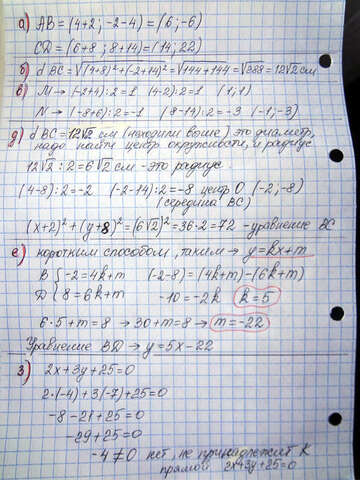 а) AB = (4+2; -2-4) = (6; -6)
CD = (6+8; 8+14) = (14; 22)
б) d BC = √(4+8)²+(-2+14)² = √144+144 = √288 = 12√2 см
в) M → (-2+4):2=1 (4-2):2=1 (1;1)
N → (-8+6):2=-1 (8-14):2=-3 (-1;-3)
д) d BC = 12√2 см (находили выше) это диаметр,
надо найти центр окружности, и радиус
12√2 : 2 = 6√2 см - это радиус
(4-8):2=-2 (-2-14):2=-8 центр O (-2;-8)
(середина BC)
(x+2)² + (y+8)² = (6√2)² = 36·2 = 72 - уравнение BC
е) коротким способом, таким → y=kx+m
B { -2=4k+m (-2-8) = (4k+m)-(6k+m)
D { 8=6k+m -10=-2k k=5
6·5+m=8 → 30+m=8 → m=-22
Уравнение BD → y=5x-22
з) 2x+3y+25=0
2·(-4)+3(-7)+25=0
-8-21+25=0
-29+25=0
-4≠0 нет, не принадлежит K
прямой 2x+3y+25=0